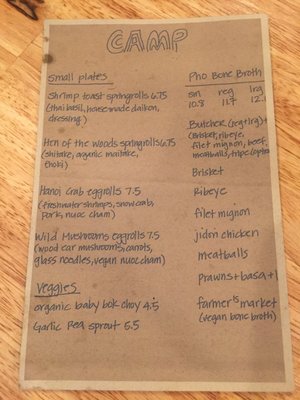 CAMP
Small plates
Shrimp toast springrolls 6.75
(thai basil, house made daikon,
dressing)
Hen of the woods springrolls 6.75
(shitake, organic maitake,
enoki)
Hanoi crab eggrolls 7.5
(freshwater shrimps, snowcrab,
pork, nuoc cham)
Wild Mushrooms eggrolls 7.5
(wood ear mushrooms, carrots,
glass noodles, vegan nuoc cham)
Veggies
organic baby bok choy 4.5
Garlic pea sprout 6.5
Pho Bone Broth
sm reg lrg
10.8 11.7 12.
Butcher (reg+lrg)+
(brisket, ribeye,
filet mignon, beef,
meatballs, tripe
Brisket
Ribeye
filet mignon
jidori chicken
meatballs
prawns + basa +
farmer's market
(vegan bone broth)